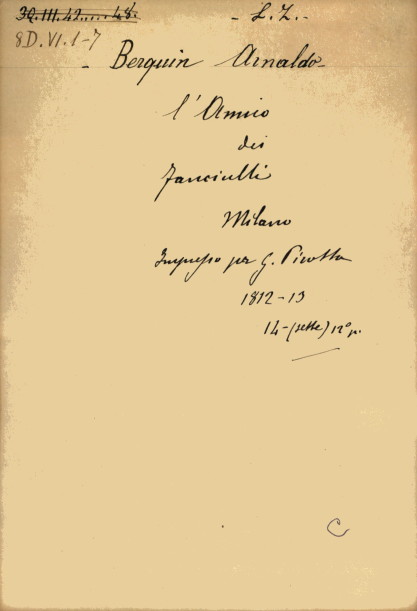 30.III.42.....48. - L. Z. -
8D.VI.1-7
- Berquin Arnaldo -
l'Amico
dei
Fanciulli
Milano
Impresso per G. Pirotta
1812-13
14-(sette) 12° p.
C